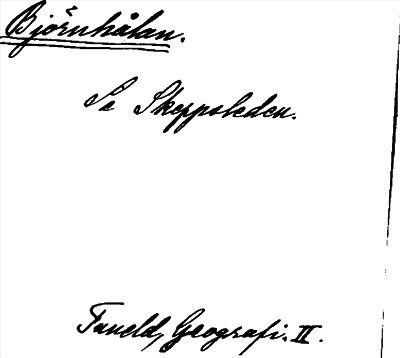 Björnhålan.
Se Skeppsleden.
Tuneld, Geografi. II.